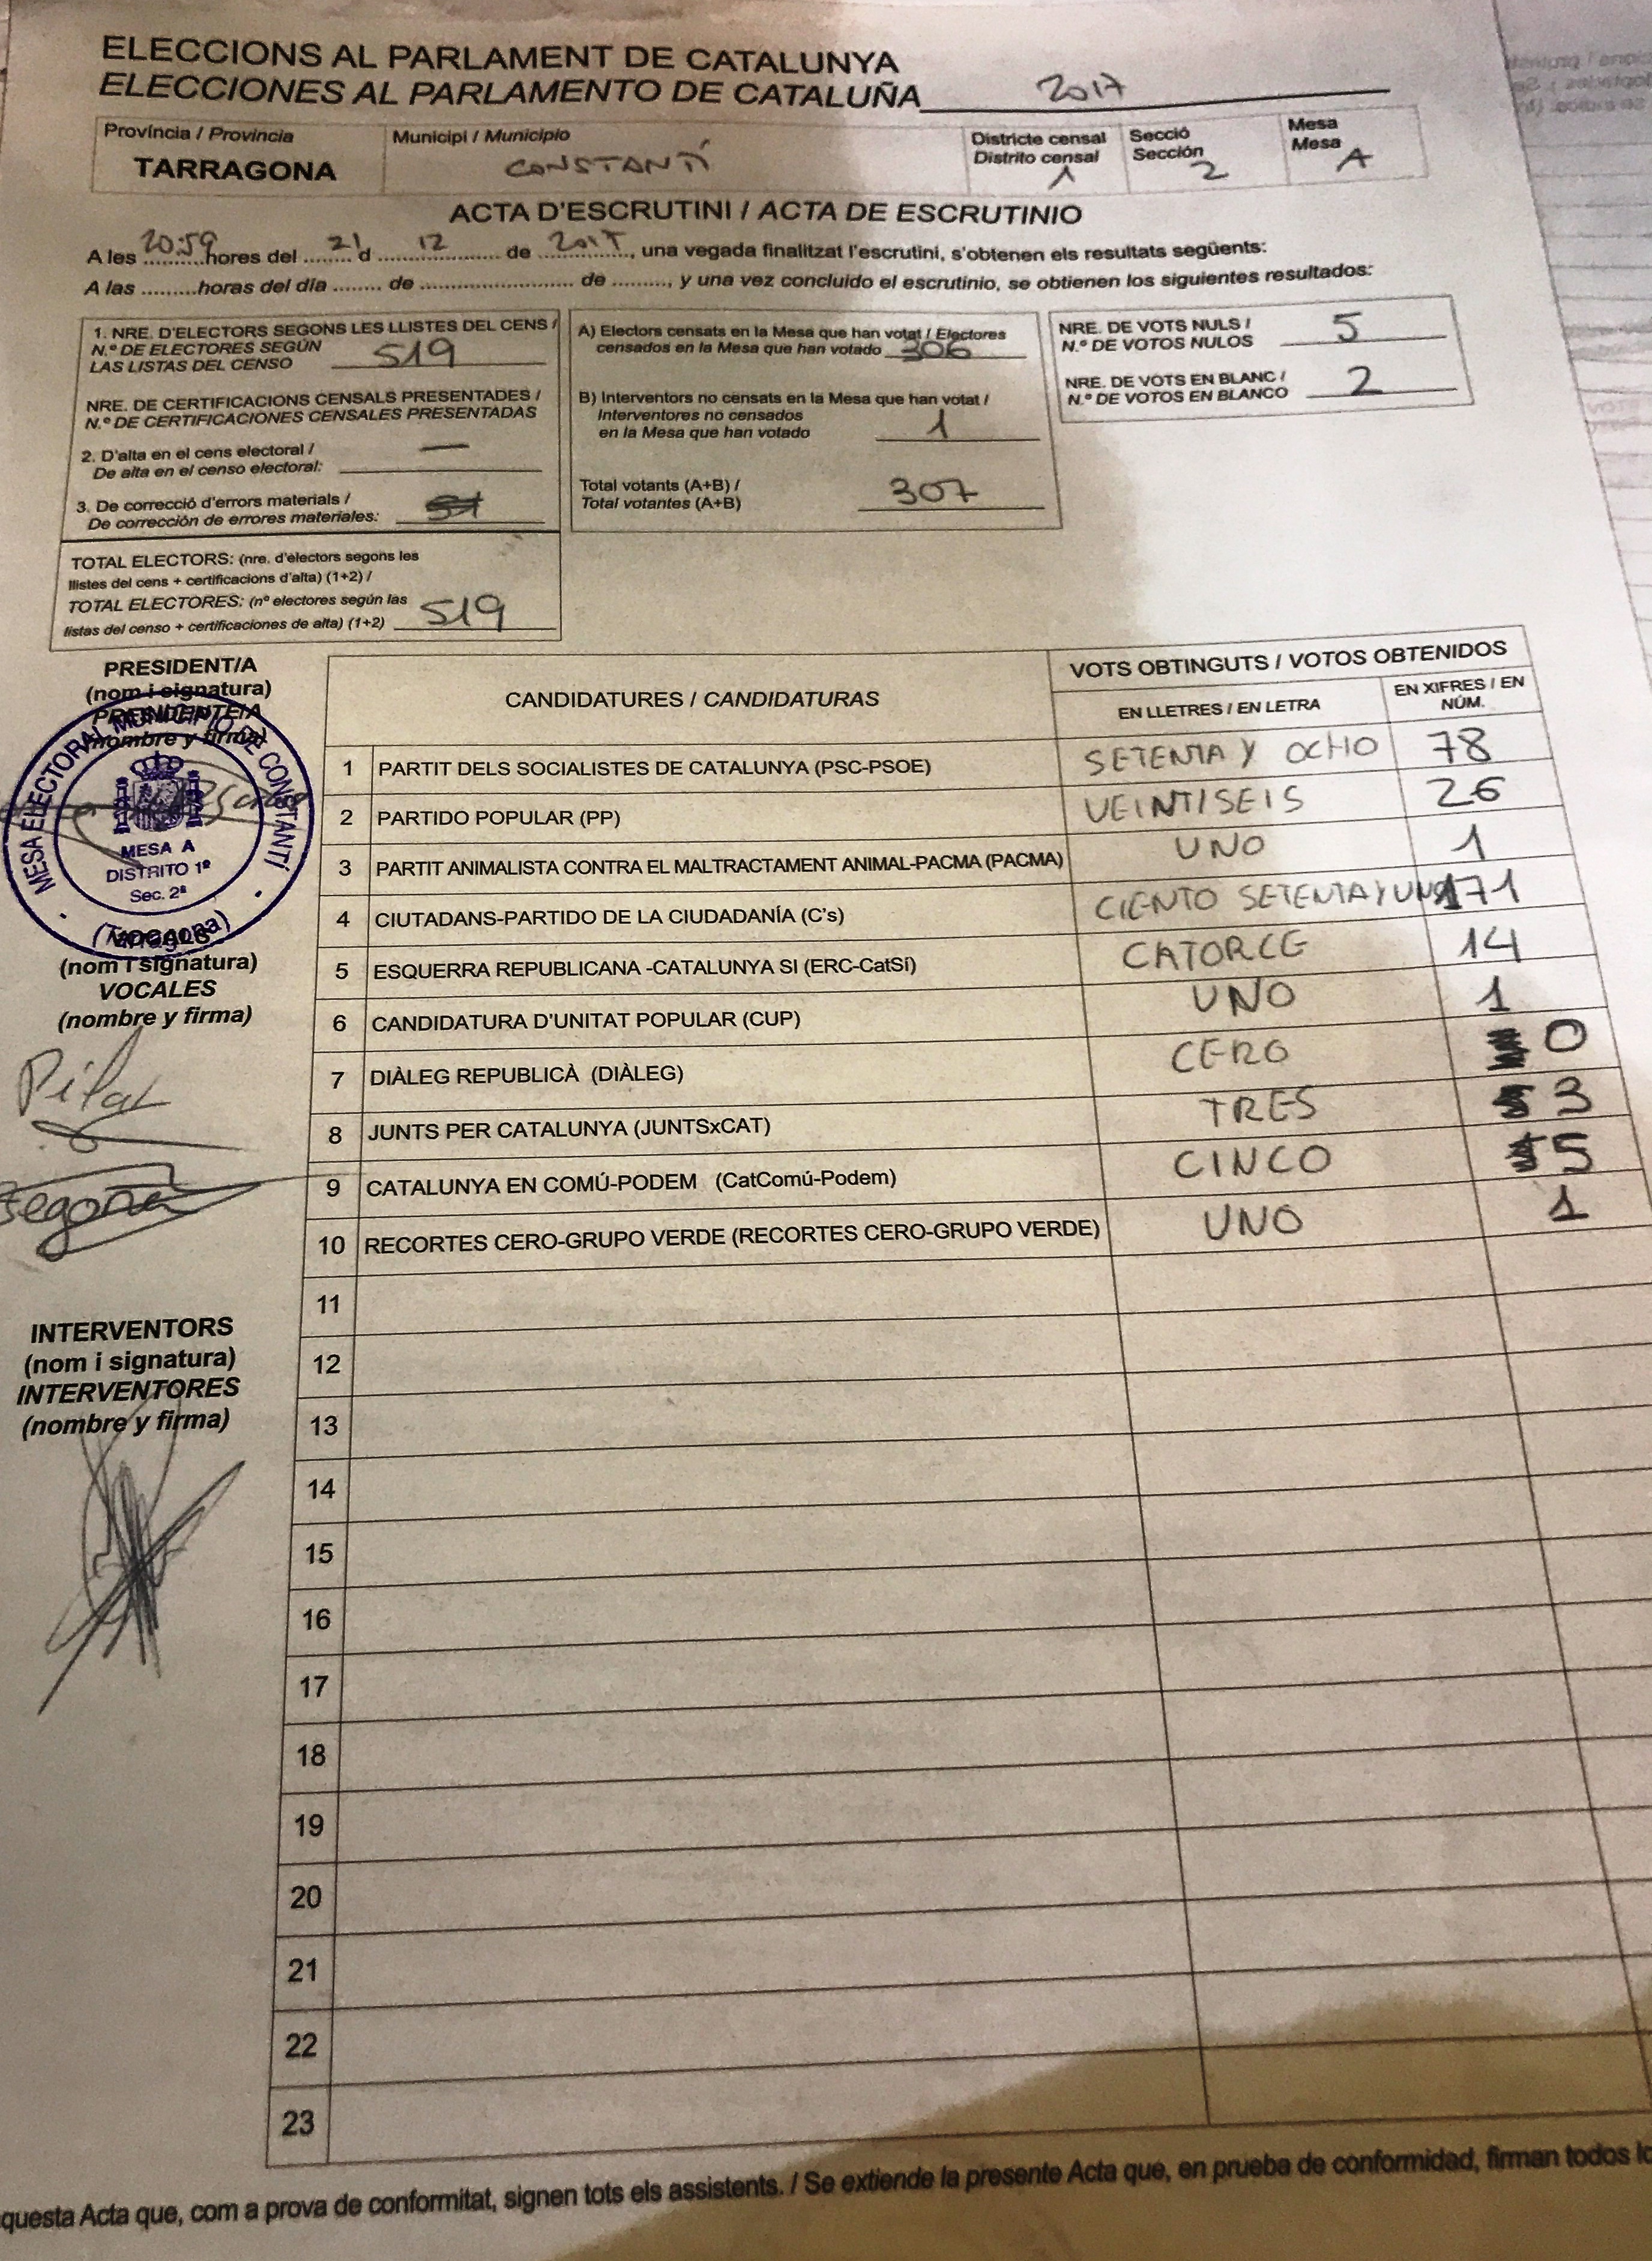 ELECCIONS AL PARLAMENT DE CATALUNYA
ELECCIONES AL PARLAMENTO DE CATALUÑA 2017
Província / Provincia
TARRAGONA
Municipi / Municipio
CONSTANTÍ
Districte censal
Distrito censal
1
Secció
Sección
2
Mesa
Mesa
A
ACTA D'ESCRUTINI / ACTA DE ESCRUTINIO
A les 20:59 hores del 21 d 12 de 2017, una vegada finalitzat l'escrutini, s'obtenen els resultats següents:
A las .........horas del día ........ de ........................ de ........., y una vez concluido el escrutinio, se obtienen los siguientes resultados:
1. NRE. D'ELECTORS SEGONS LES LLISTES DEL CENS /
N.º DE ELECTORES SEGÚN
LAS LISTAS DEL CENSO 519
NRE. DE CERTIFICACIONS CENSALS PRESENTADES /
N.º DE CERTIFICACIONES CENSALES PRESENTADAS
2. D'alta en el cens electoral /
De alta en el censo electoral: —
3. De correcció d'errors materials /
De corrección de errores materiales:
TOTAL ELECTORS: (nre. d'electors segons les
llistes del cens + certificacions d'alta) (1+2) /
TOTAL ELECTORES: (nº electores según las
listas del censo + certificaciones de alta) (1+2) 519
A) Electors censats en la Mesa que han votat / Electores
censados en la Mesa que han votado 306
B) Interventors no censats en la Mesa que han votat /
Interventores no censados
en la Mesa que han votado 1
Total votants (A+B) /
Total votantes (A+B) 307
NRE. DE VOTS NULS /
N.º DE VOTOS NULOS 5
NRE. DE VOTS EN BLANC /
N.º DE VOTOS EN BLANCO 2
PRESIDENT/A
(nom i signatura)
PRESIDENTE/A
(nombre y firma)
MESA ELECTORAL MUNICIPIO DE CONSTANTÍ
MESA A
DISTRITO 1º
Sec. 2ª
(Tarragona)
VOCALS
(nom i signatura)
VOCALES
(nombre y firma)
Pilar
Begoña
INTERVENTORS
(nom i signatura)
INTERVENTORES
(nombre y firma)
CANDIDATURES / CANDIDATURAS
VOTS OBTINGUTS / VOTOS OBTENIDOS
EN LLETRES / EN LETRA
EN XIFRES / EN
NÚM.
1 PARTIT DELS SOCIALISTES DE CATALUNYA (PSC-PSOE) SETENTA Y OCHO 78
2 PARTIDO POPULAR (PP) VEINTISEIS 26
3 PARTIT ANIMALISTA CONTRA EL MALTRACTAMENT ANIMAL-PACMA (PACMA) UNO 1
4 CIUTADANS-PARTIDO DE LA CIUDADANÍA (C's) CIENTO SETENTA Y UNO 171
5 ESQUERRA REPUBLICANA -CATALUNYA SI (ERC-CatSí) CATORCE 14
6 CANDIDATURA D'UNITAT POPULAR (CUP) UNO 1
7 DIÀLEG REPUBLICÀ (DIÀLEG) CERO 0
8 JUNTS PER CATALUNYA (JUNTSxCAT) TRES 3
9 CATALUNYA EN COMÚ-PODEM (CatComú-Podem) CINCO 5
10 RECORTES CERO-GRUPO VERDE (RECORTES CERO-GRUPO VERDE) UNO 1
11
12
13
14
15
16
17
18
19
20
21
22
23
questa Acta que, com a prova de conformitat, signen tots els assistents. / Se extiende la presente Acta que, en prueba de conformidad, firman todos lo